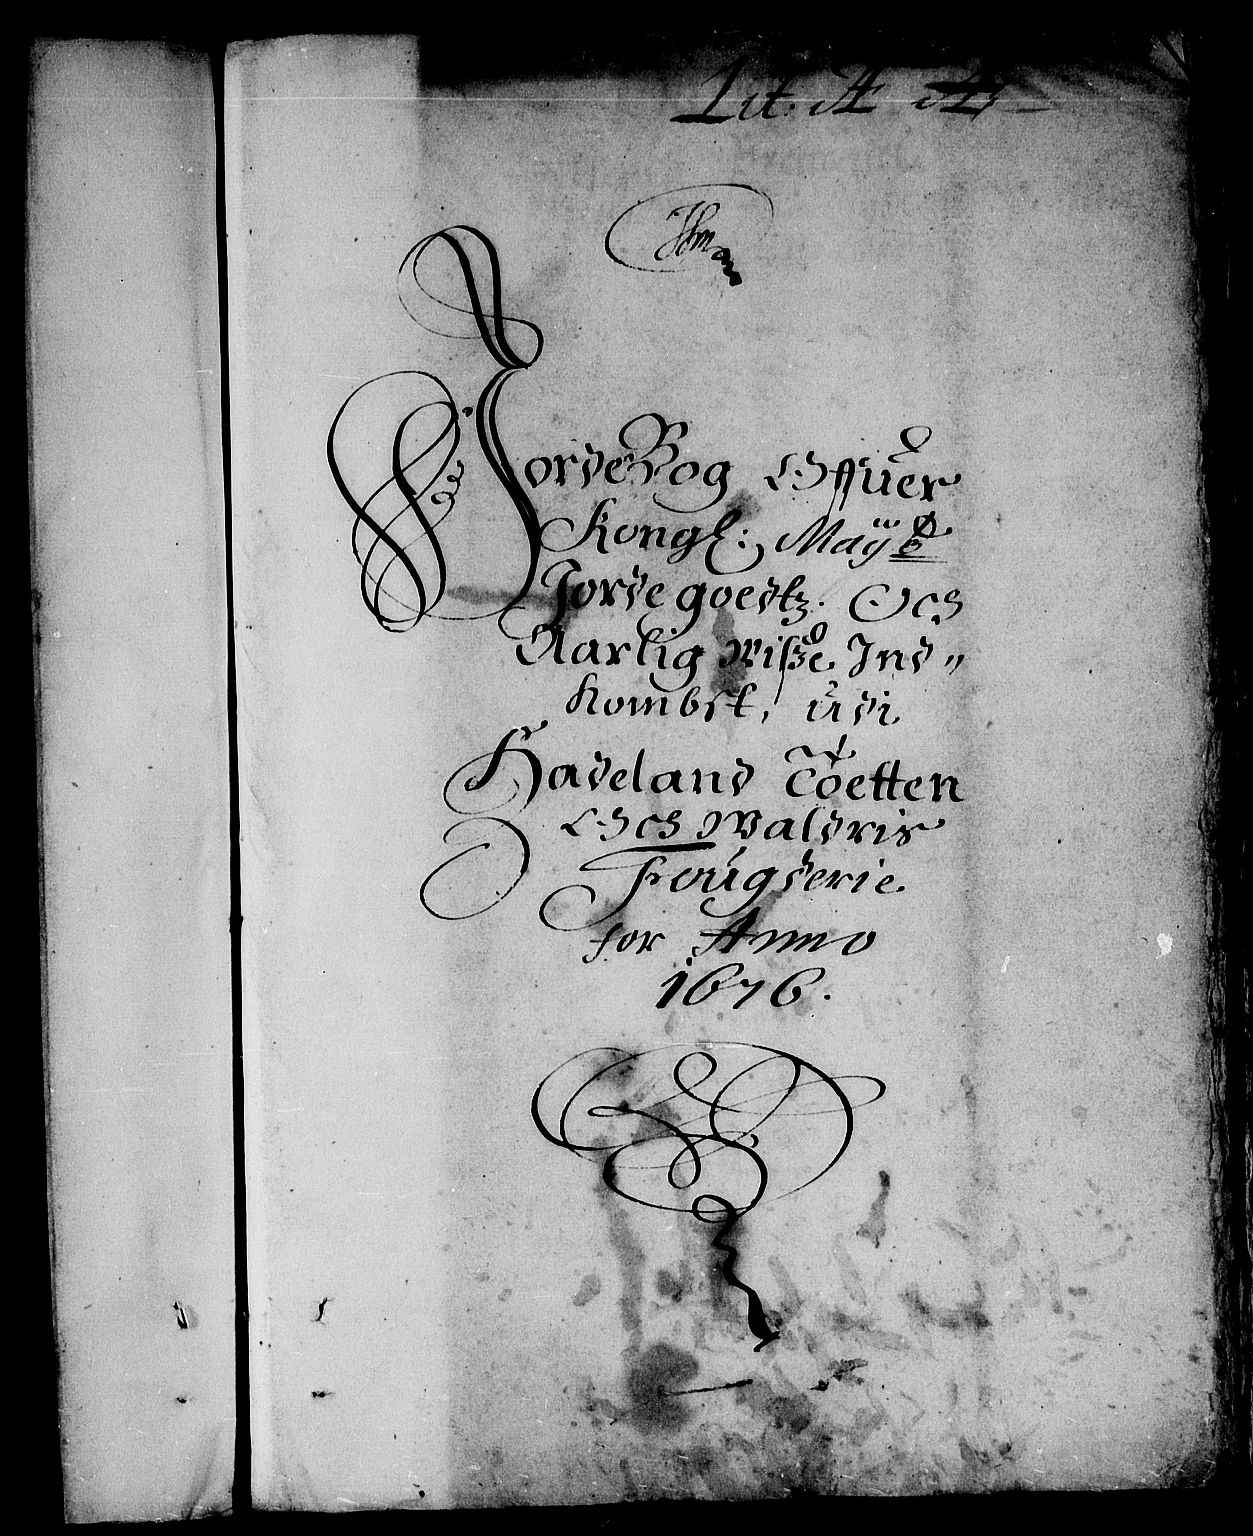 Lit: Æ
JordeBog Offuer
Kongl: Maÿtz
Jordegoedtz. Och
Aarlig Wisze Ind„
Kombst, udi
Hadeland Toetten
Och Waldris
Fougderie
for Anno
1676.